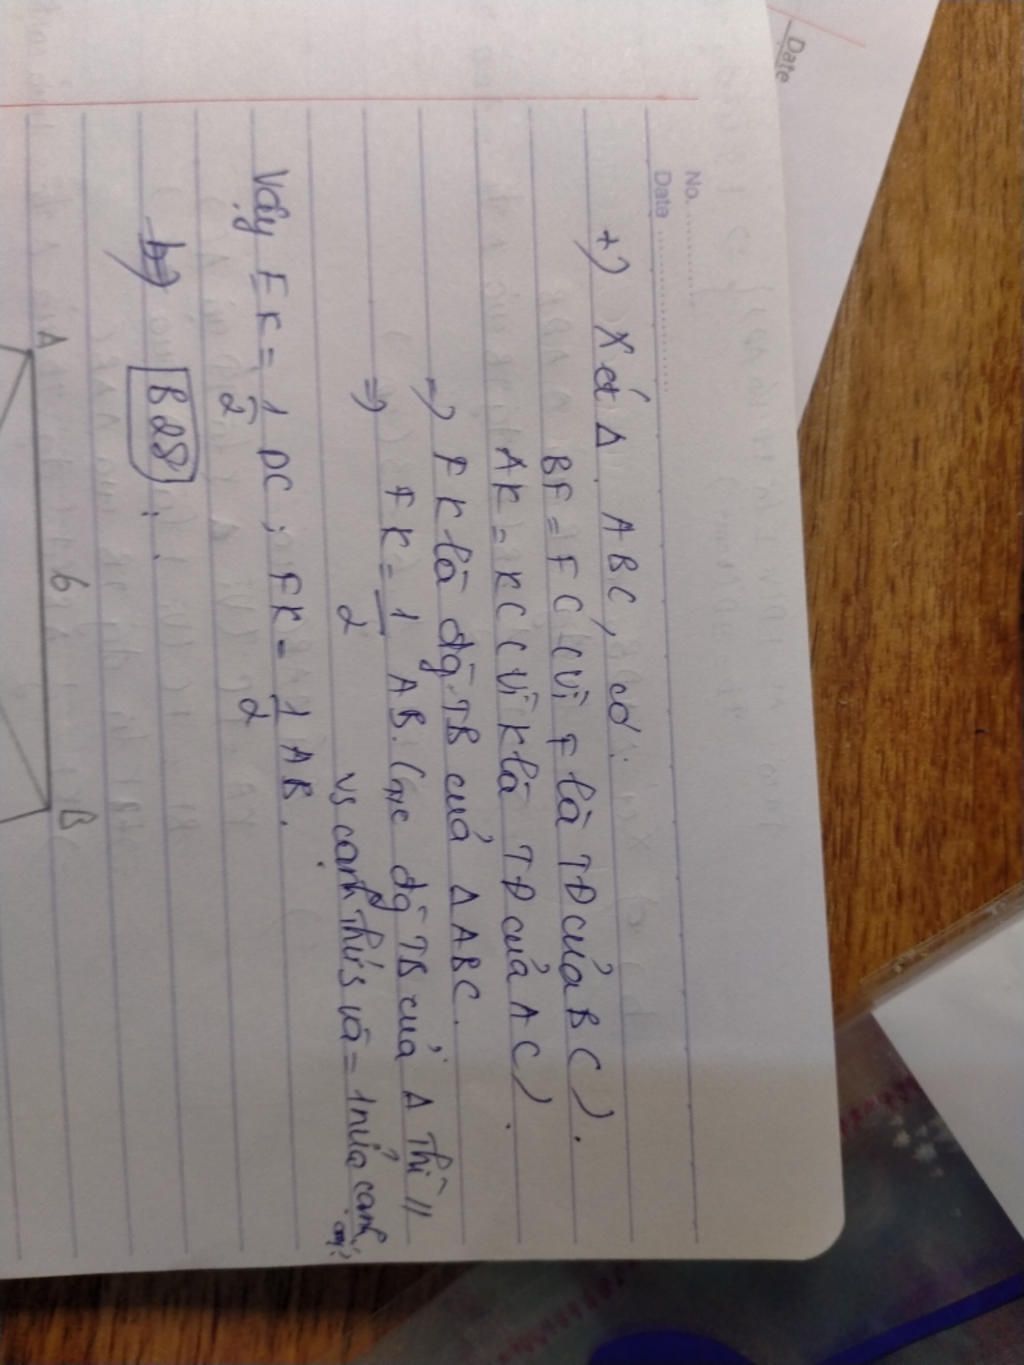 Date
No.
Date
+) Xét Δ ABC, có:
BF = FC (vì F là TĐ của BC).
AK = KC (vì K là TĐ của AC).
=) FK là đg TB của Δ ABC.
=) FK = 1/2 AB. (đg TB của Δ thì //
vs cạnh thứ 3 và = 1 nửa cạnh
ấy)
Vậy EK = 1/2 DC; FK = 1/2 AB.
b) B28:
A b B